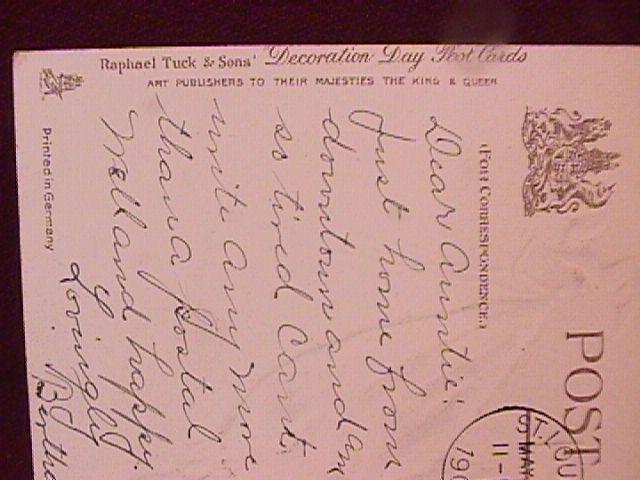 Raphael Tuck & Sons' Decoration Day Post Cards
ART PUBLISHERS TO THEIR MAJESTIES THE KING & QUEEN
Printed in Germany
(FOR CORRESPONDENCE.)
Dear Auntie!
Just home from
downtown and am
so tired Cant
write any more
than a postal
Well and happy.
Lovingly
Bertha
POST
LOU
MAY
11
190